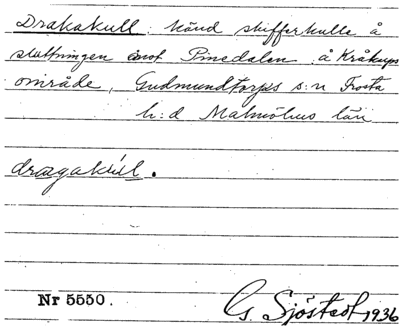 Drakakull: Känd skifferkulle å
sluttningen mot Pinedalen å Kråkups
område, Gudmundtorps s:n Frosta
h:d Malmöhus län
dragakúll.
Nr 5550.
G. Sjöstedt 1936